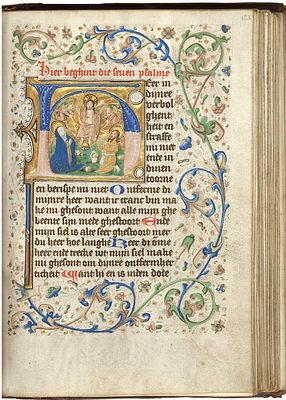 123
Hier beghint die seven psalme
Heer in
dijnre
verbol
ghent
heit en
straffe
mi niet
ende in
dinen
toorne
en berispe mi niet Ontferme di
mijnre heer want ic cranc bin ma
ke mi ghesont want alle mijn ghe
beente sijn mede ghestoort Ende
mijn siel is alte seer ghestoort mer
du heer hoe langhe Keer di ome
heer ende trecke wt mijn siel make
mi ghesont om dijnre ontfermher
ticheit Want hi en is inden dode